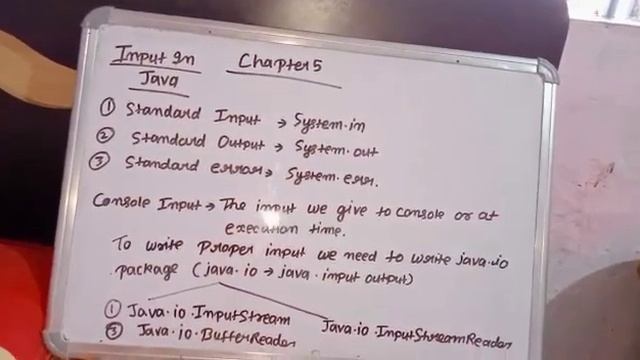 Input In Chapter 5
Java
① Standard Input → System.in
② Standard Output → System.out
③ Standard error → System.err.
Console Input → The input we give to console or at
execution time.
To write proper input we need to write java.io
package (java.io → java.input output)
① Java.io.InputStream
Java.io.InputStreamReader
③ Java.io.BufferReader